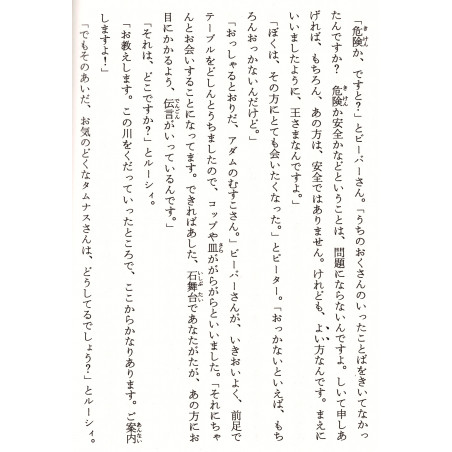 「危険か、ですと？」とビーバーさん。「うちのおくさんのいったことばをきいてなかっ
たんですか？　危険か安全かなどということは、問題にならないんですよ。しいて申しあ
げれば、もちろん、あの方は、安全ではありません。けれども、よい方なんです。まえに
いいましたように、王さまなんですよ。」
「ぼくは、その方にとても会いたくなった。」とピーター。「おっかないといえば、もち
ろんおっかないんだけど。」
「おっしゃるとおりだ、アダムのむすこさん。」ビーバーさんが、いきおいよく、前足で
テーブルをどしんとうちましたので、コップや皿ががらがらといいました。「それにちゃ
んとお会いすることになってます。できればあした、石舞台であなたがたが、あの方にお
目にかかるよう、伝言がいっているんです。」
「それは、どこですか？」とルーシィ。
「お教えします。この川をくだっていったところで、ここからかなりあります。ご案内
しますよ！」
「でもそのあいだ、お気のどくなタムナスさんは、どうしてるでしょう？」とルーシィ。